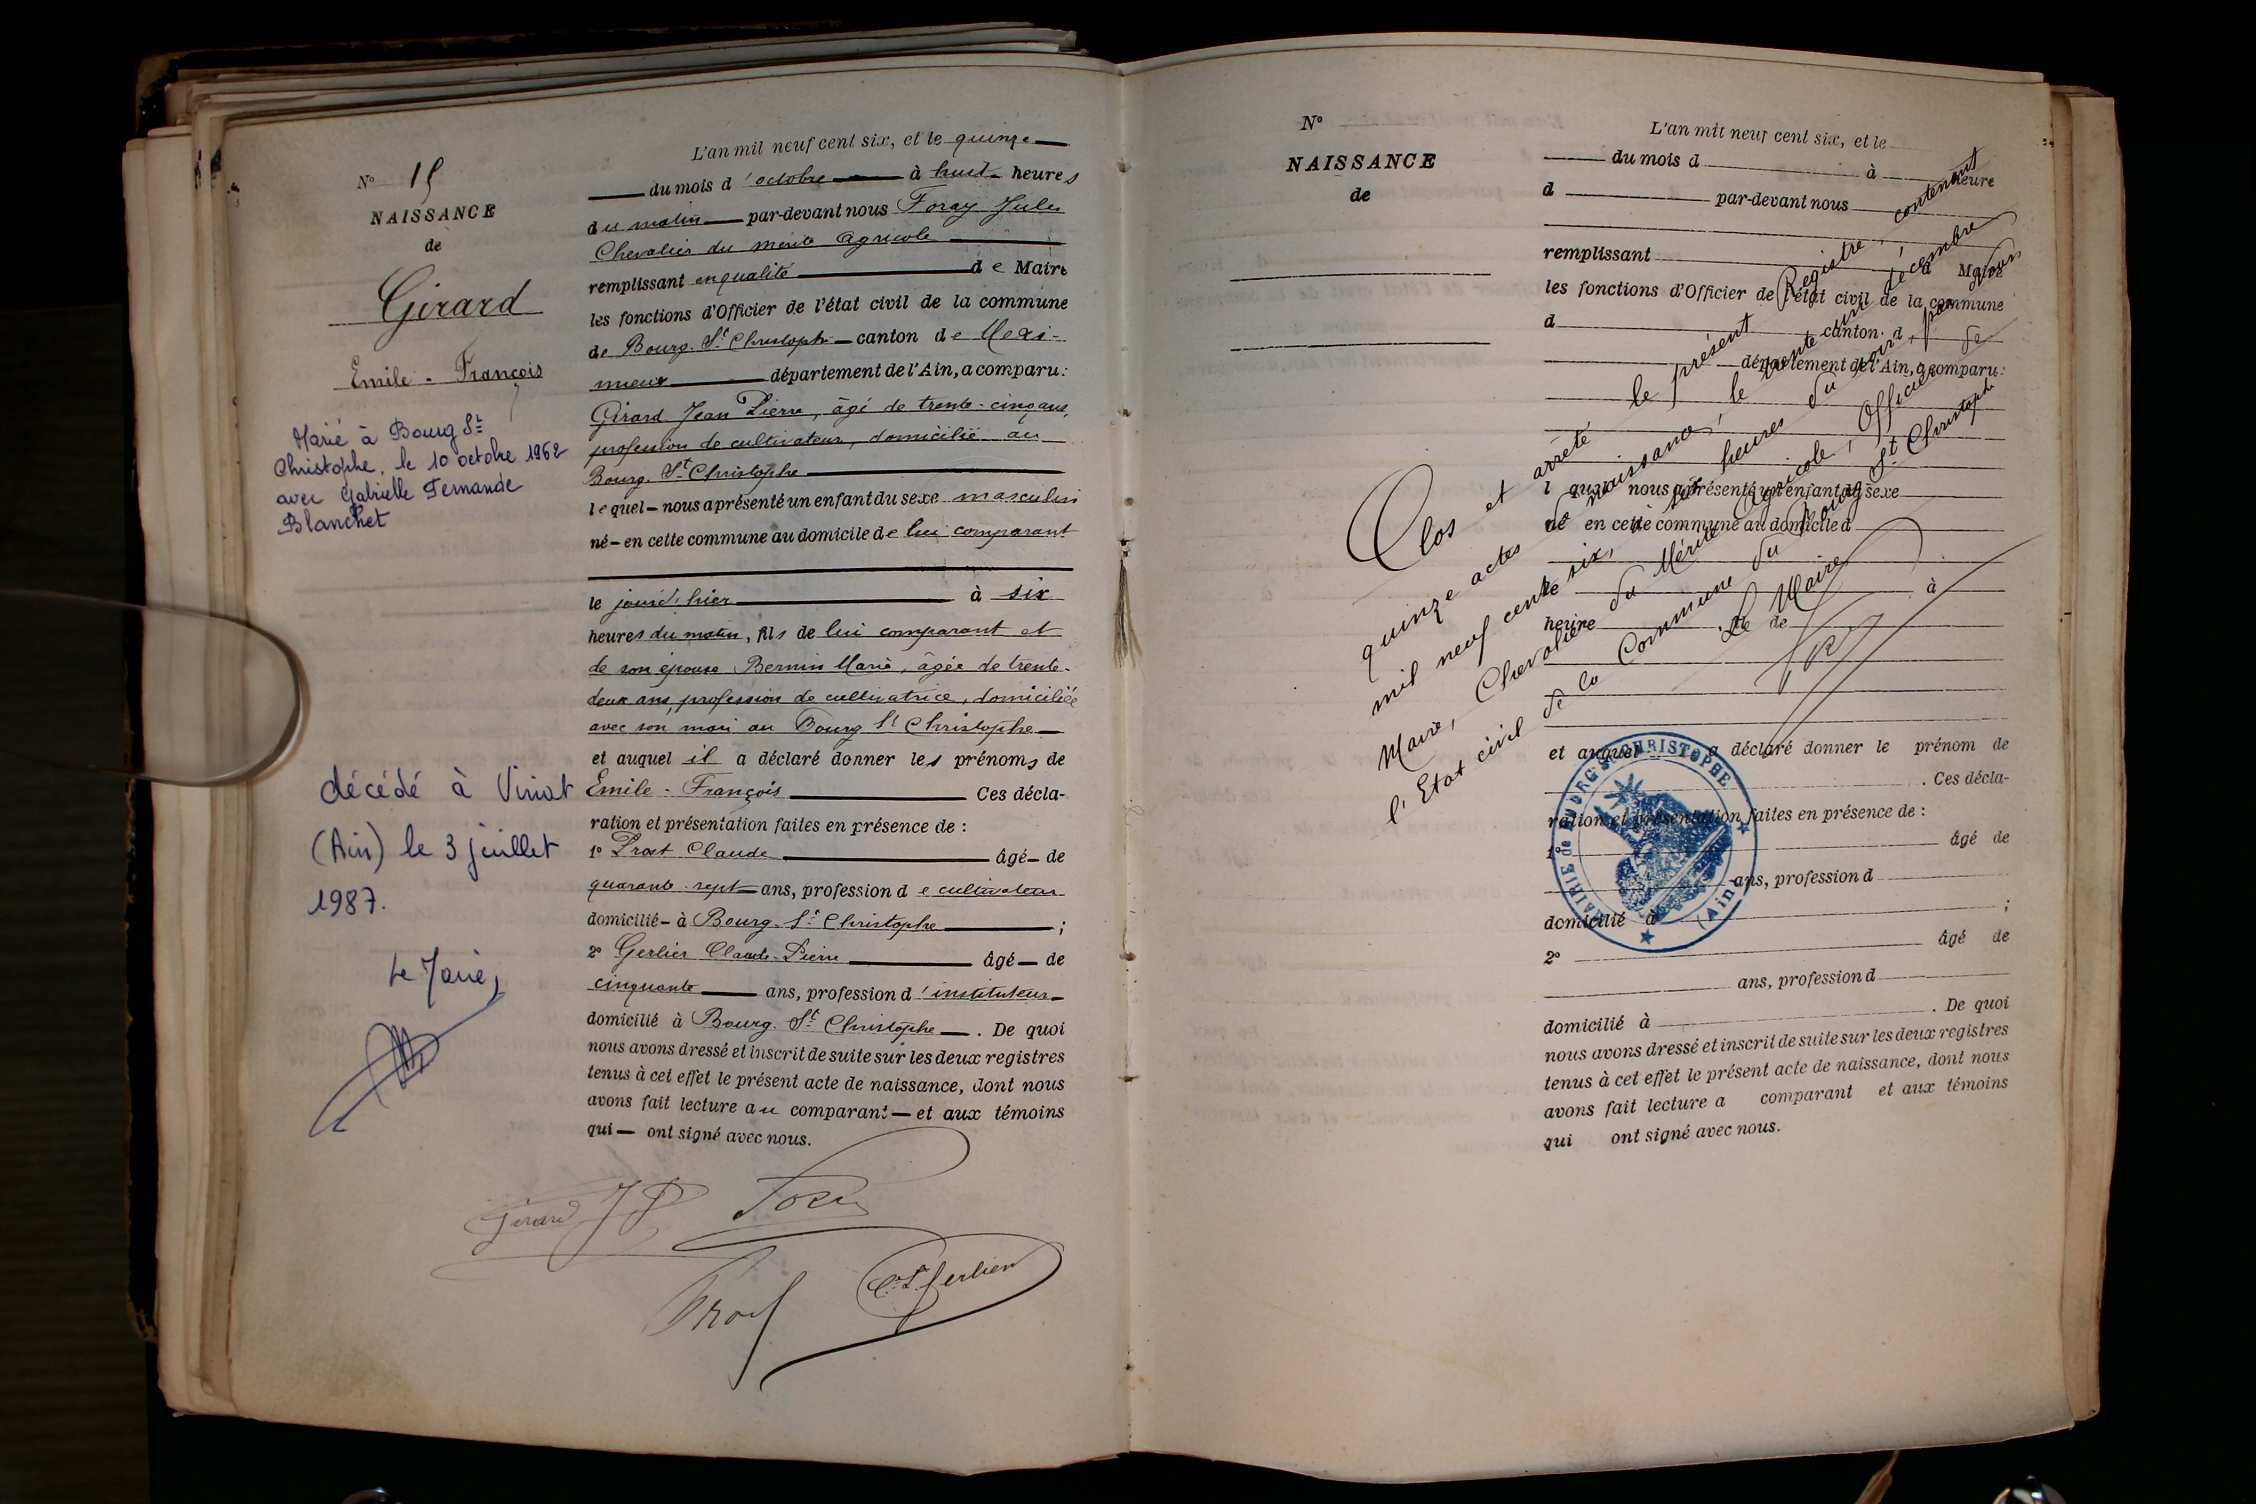 N° 15
NAISSANCE
de
Girard
Emile - François
Marié à Bourg St
Christophe, le 10 octobre 1962
avec Gabrielle Fernande
Blanchet
décédé à Viriat
(Ain) le 3 juillet
1987.
Le Maire,
L'an mil neuf cent six, et le quinze
du mois d'octobre à huit heures
du matin par-devant nous Foray Jules
Chevalier du mérite agricole
remplissant en qualité de Maire
les fonctions d'Officier de l'état civil de la commune
de Bourg St Christophe canton de Mexi-
mieux département de l'Ain, a comparu :
Girard Jean Pierre, âgé de trente-cinq ans,
profession de cultivateur, domicilié au
Bourg St Christophe
lequel nous a présenté un enfant du sexe masculin
né en cette commune au domicile de lui comparant
le jour d'hier à six
heures du matin, fils de lui comparant et
de son épouse Bernin Marie, âgée de trente-
deux ans, profession de cultivatrice, domiciliée
avec son mari au Bourg St Christophe
et auquel il a déclaré donner les prénoms de
Emile - François Ces décla-
ration et présentation faites en présence de :
1° Prost Claude âgé de
quarante-sept ans, profession de cultivateur
domicilié à Bourg-St Christophe ;
2° Gerlier Claude-Pierre âgé de
cinquante ans, profession d'instituteur
domicilié à Bourg-St Christophe. De quoi
nous avons dressé et inscrit de suite sur les deux registres
tenus à cet effet le présent acte de naissance, dont nous
avons fait lecture au comparant et aux témoins
qui ont signé avec nous.
Girard J P Foray
Prost Cl. P. Gerlier
N°
NAISSANCE
de
L'an mil neuf cent six, et le
du mois d à heure
d par-devant nous
remplissant d Maire
les fonctions d'Officier de l'état civil de la commune
d canton d
département de l'Ain, a comparu :
l quel nous a présenté un enfant du sexe
né en cette commune au domicile d
le à
heure du , fil de
et auquel a déclaré donner le prénom de
. Ces décla-
ration et présentation faites en présence de :
1° âgé de
ans, profession d
domicilié à ;
2° âgé de
ans, profession d
domicilié à . De quoi
nous avons dressé et inscrit de suite sur les deux registres
tenus à cet effet le présent acte de naissance, dont nous
avons fait lecture a comparant et aux témoins
qui ont signé avec nous.
Clos et arrêté le présent Registre, contenant
quinze actes de naissance, le trente un décembre
mil neuf cent six, à six heures du soir, par nous
Maire, Chevalier du Mérite Agricole, Officier de
l'Etat civil de la Commune du Bourg St Christophe
Le Maire
MAIRIE de BOURG-ST-CHRISTOPHE
(Ain)